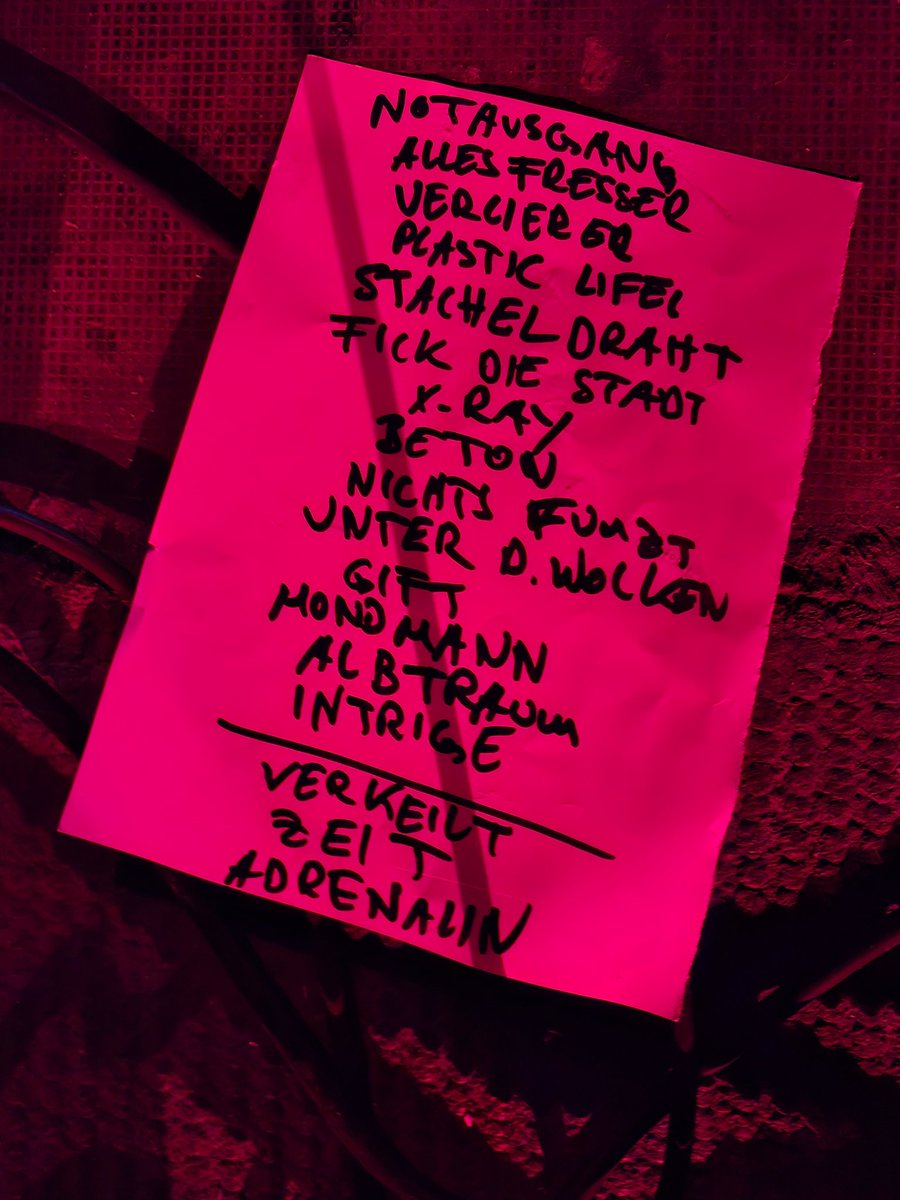 NOTAUSGANG
ALLESFRESSER
VERLIERER
PLASTIC LIFE
STACHELDRAHT
FICK DIE STADT
X-RAY
BETON
NICHTS FUNZT
UNTER D. WOLKEN
GIFT
MONDMANN
ALBTRAUM
INTRIGE
VERKEILT
ZEIT
ADRENALIN